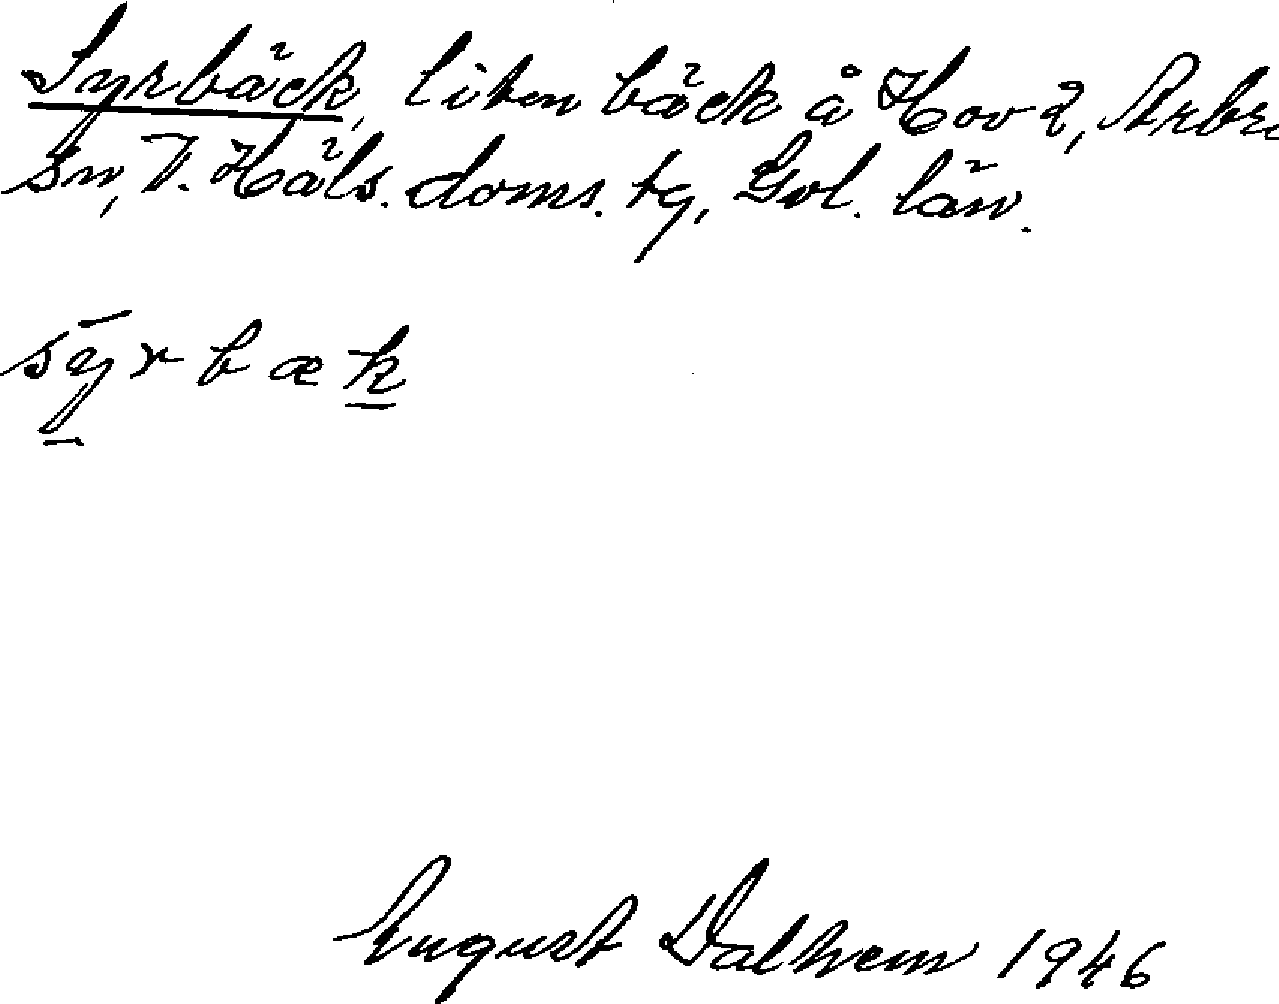 Syrbäck, liten bäck å Hov 2, Arbrå
sn, V. Häls. doms. tg, Gvl. län.
sȳ̱rbæḵ
August Dalhem 1946